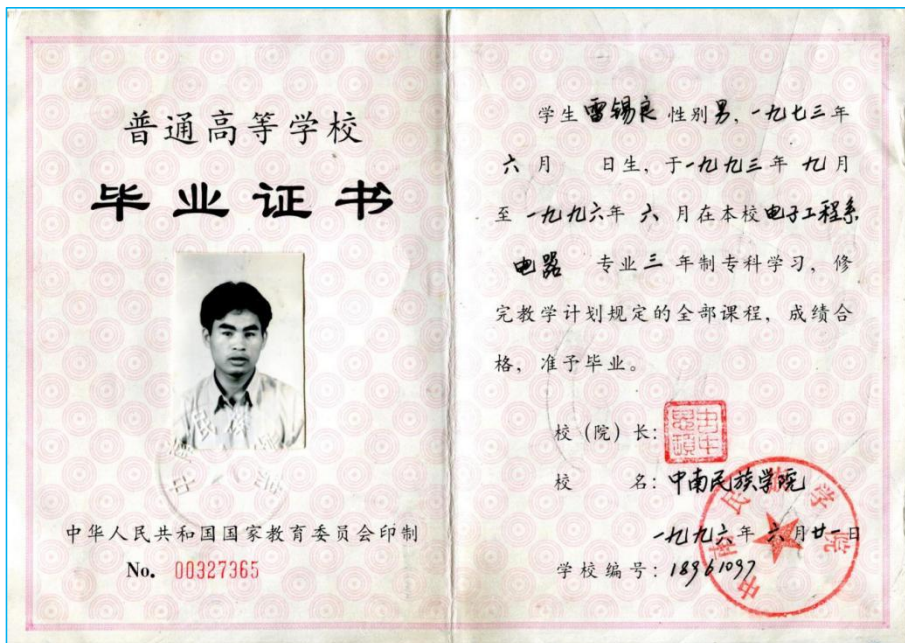 普通高等学校
毕业证书
中华人民共和国国家教育委员会印制
No. 00327365
学生雷锡良性别男，一九七三年
六月 日生，于一九九三年九月
至一九九六年六月在本校电子工程系
电器 专业三年制专科学习，修
完教学计划规定的全部课程，成绩合
格，准予毕业。
校（院）长：
校 名：中南民族学院
一九九六年六月廿一日
学校编号：18961097
中南民族学院